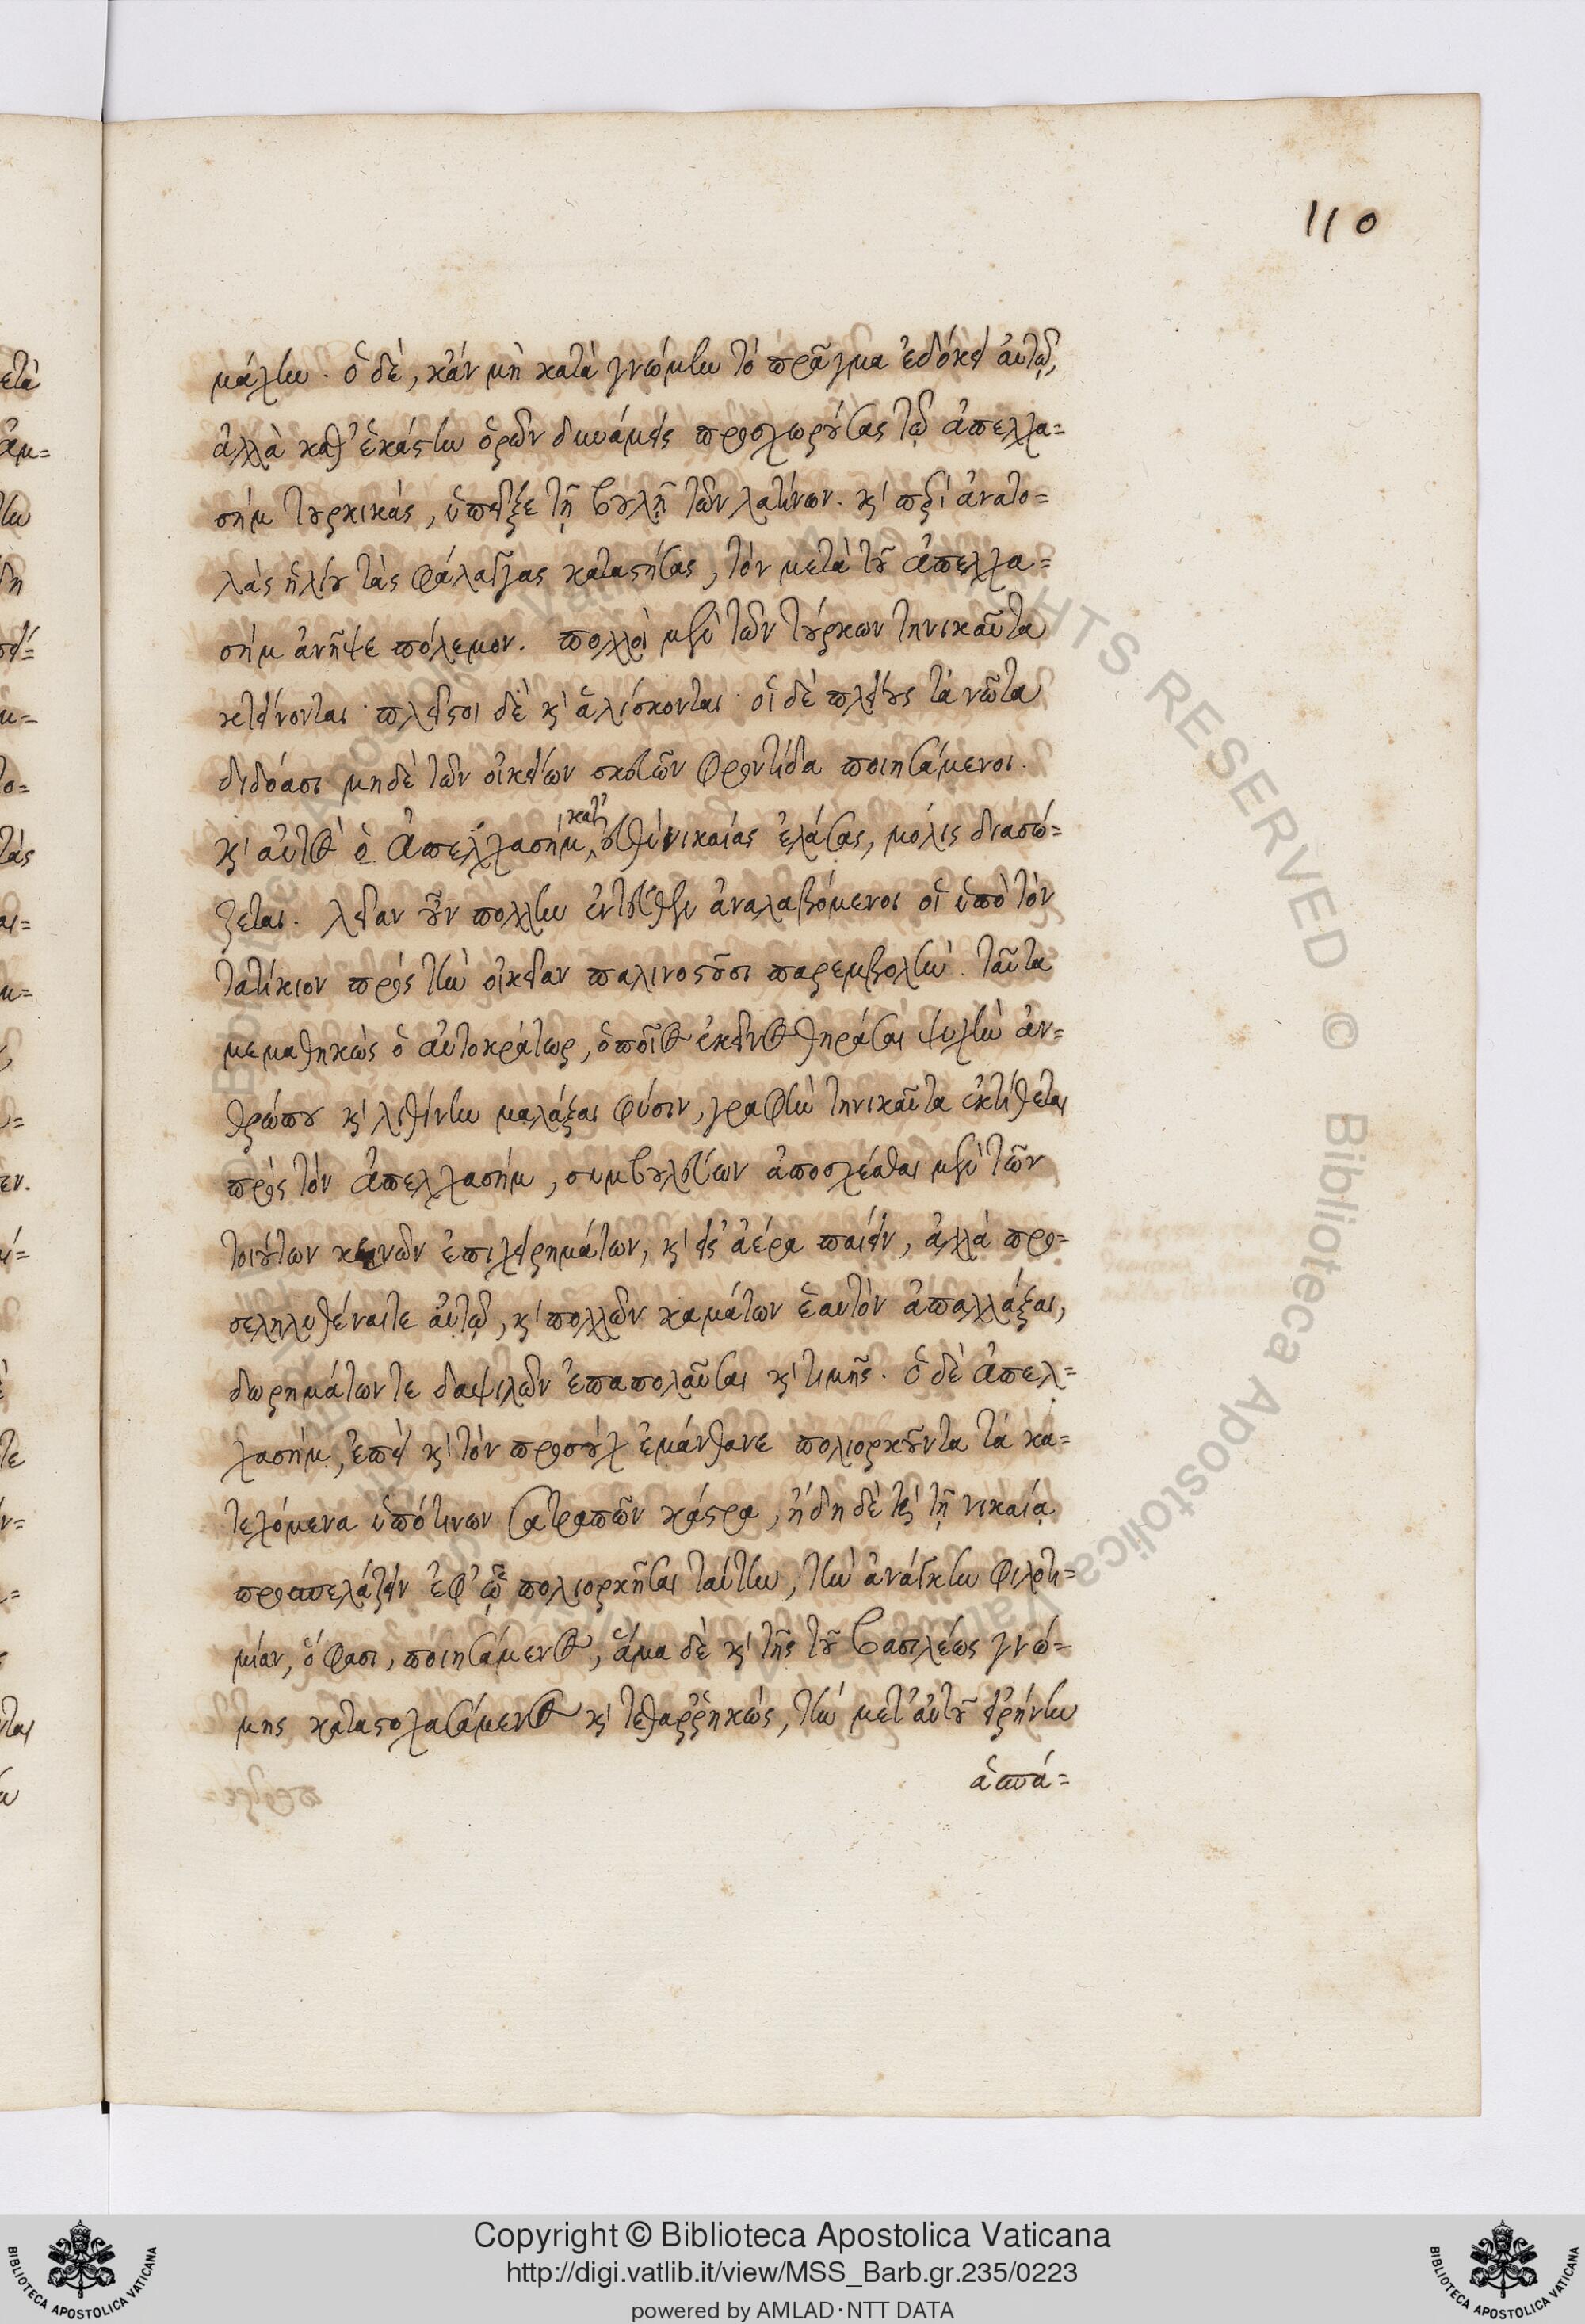 110
μάχην. ὁ δὲ, κἂν μὴ κατὰ γνώμην τὸ πρᾶγμα ἐδόκει αὐτῷ,
ἀλλὰ καθ' ἑκάστην ὁρῶν δυνάμεις προσχωρούσας τῷ ἀπελχα=
σὴμ τουρκικὰς, ὑπεῖξε τῇ βουλῇ τῶν λατίνων. κ' περὶ ἀνατο=
λὰς ἡλίου τὰς φάλαγγας καταστήσας, τὸν μετὰ τοῦ ἀπελχα=
σὴμ ἀνῆψε πόλεμον. πολλοὶ μὲν τῶν τούρκων τηνικαῦτα
κτείνονται· πλεῖστοι δὲ κ' ἁλίσκονται· οἱ δὲ πλείους τὰ νῶτα
διδόασι μηδὲ τῶν οἰκείων σκευῶν φροντίδα ποιησάμενοι.
κ' αὐτὸς ὁ Ἀπελχασὴμ κατ' εὐθὺ νικαίας ἐλάσας, μόλις διασώ=
ζεται. λείαν οὖν πολλὴν ἐντεῦθεν ἀναλαβόμενοι οἱ ὑπὸ τὸν
τατίκιον πρὸς τὴν οἰκείαν παλινοστοῦσι παρεμβολήν. ταῦτα
μεμαθηκὼς ὁ αὐτοκράτωρ, ὁποῖος ἐκεῖνος θηρᾶσαι ψυχὴν ἀν=
θρώπου κ' λιθίνην μαλάξαι φύσιν, γραφὴν τηνικαῦτα ἐκτίθεται
πρὸς τὸν ἀπελχασὴμ, συμβουλεύων ἀποσχέσθαι μὲν τῶν
τοιούτων κενῶν ἐπιχειρημάτων, κ' εἰς ἀέρα παίειν, ἀλλὰ προ=
σεληλυθέναι τε αὐτῷ, κ' πολλῶν καμάτων ἑαυτὸν ἀπαλλάξαι,
δωρημάτων τε δαψιλῶν ἐπαπολαῦσαι κ' τιμῆς. ὁ δὲ ἀπελ=
χασὴμ, ἐπεὶ κ' τὸν προσοὺχ ἐμάνθανε πολιορκοῦντα τὰ κα=
τεχόμενα ὑπό τινων σατραπῶν κάστρα, ἤδη δὲ κ' τῇ νικαίᾳ
προσπελάζειν ἐφ' ᾧ πολιορκῆσαι ταύτην, τὴν ἀνάγκην φιλοτι=
μίαν, ὅ φασι, ποιησάμενος, ἅμα δὲ κ' τῆς τοῦ βασιλέως γνώ=
μης καταστοχασάμενος κ' τεθαῤῥηκώς, τὴν μετ' αὐτοῦ εἰρήνην
ἀσπά=
Copyright © Biblioteca Apostolica Vaticana
http://digi.vatlib.it/view/MSS_Barb.gr.235/0223
powered by AMLAD·NTT DATA